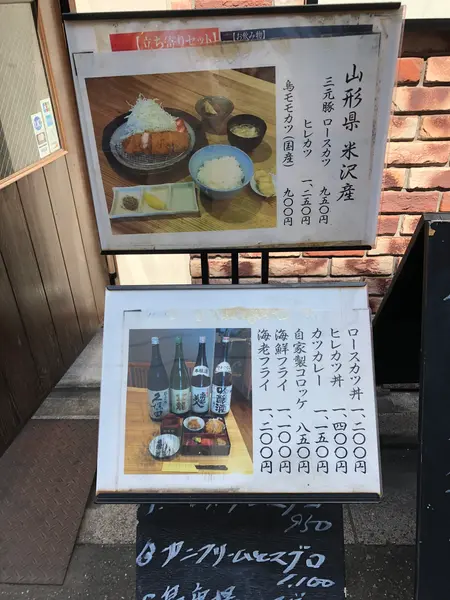 【立ち寄りセット】
【お飲み物】
山形県 米沢産
三元豚 ロースカツ 九五〇円
ヒレカツ 一、二五〇円
鳥モモカツ(国産) 九〇〇円
ロースカツ丼 一、二〇〇円
ヒレカツ丼 一、四〇〇円
カツカレー 一、一五〇円
自家製コロッケ 八五〇円
海鮮フライ 一、一〇〇円
海老フライ 一、二〇〇円
久保田
950
1,100